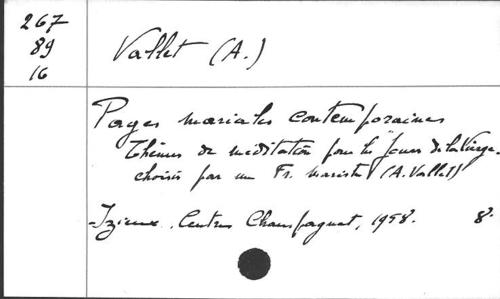 267
89
16
Vallet (A.)
Pages mariales contemporaines
Thèmes de méditation pour les jours de la Vierge
choisis par un Fr. mariste (A. Vallet)
- Izieux, Centre Champagnat, 1958. 8°